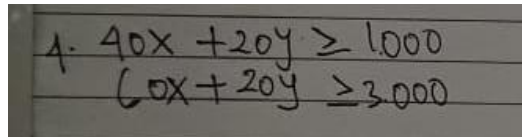 4. 40x + 20y ≥ 1.000
60x + 20y ≥ 3.000